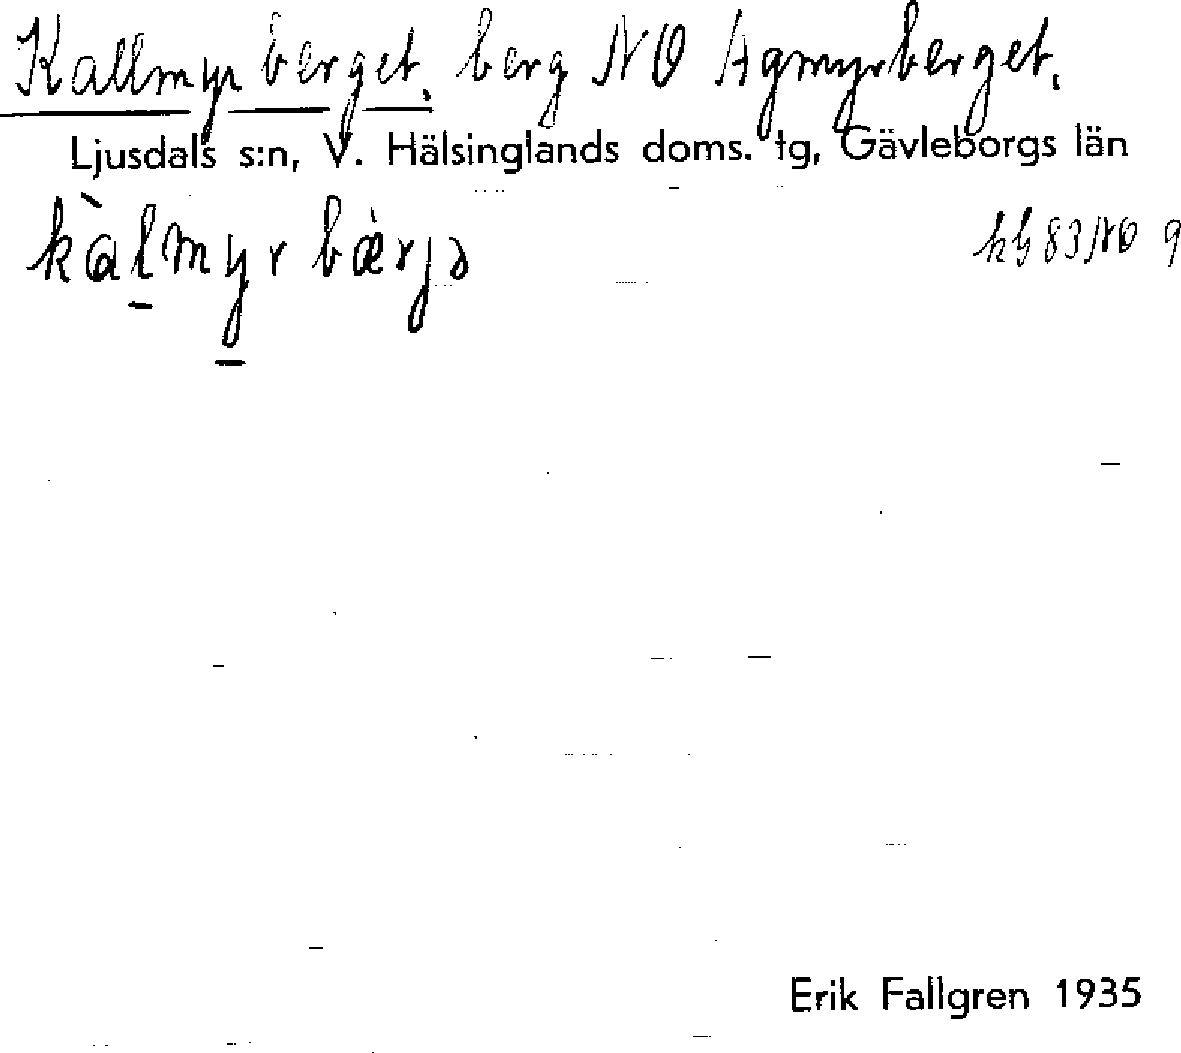 Kallmyrberget. berg NO Agmyrberget.
Ljusdals s:n, V. Hälsinglands doms. tg, Gävleborgs län
kàlmyrbæ̀rjə
83 NO 9
Erik Fallgren 1935